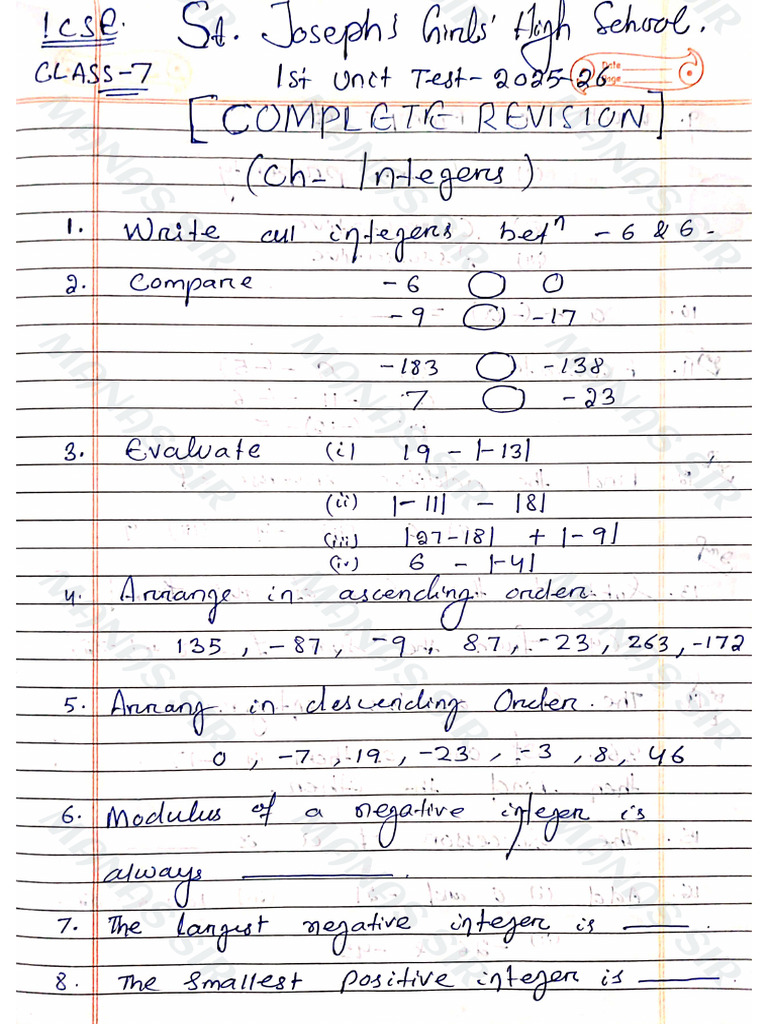 ICSE. St. Joseph's Girls' High School.
CLASS-7 1st Unit Test- 2025-26
Date
Page
[COMPLETE REVISION]
(Ch- Integers)
1. Write all integers betⁿ -6 & 6.
2. Compare -6 ◯ 0
-9 ◯ -17
-183 ◯ -138
7 ◯ -23
3. Evaluate (i) 19 - |-13|
(ii) |-11| - |8|
(iii) |27-18| + |-9|
(iv) 6 - |-4|
4. Arrange in ascending order.
135, -87, -9, 87, -23, 263, -172
5. Arrang in descending Order.
0, -7, 19, -23, -3, 8, 46
6. Modulus of a negative integer is
always ________.
7. The largest negative integer is ____
8. The smallest positive integer is ____
MANAS SIR